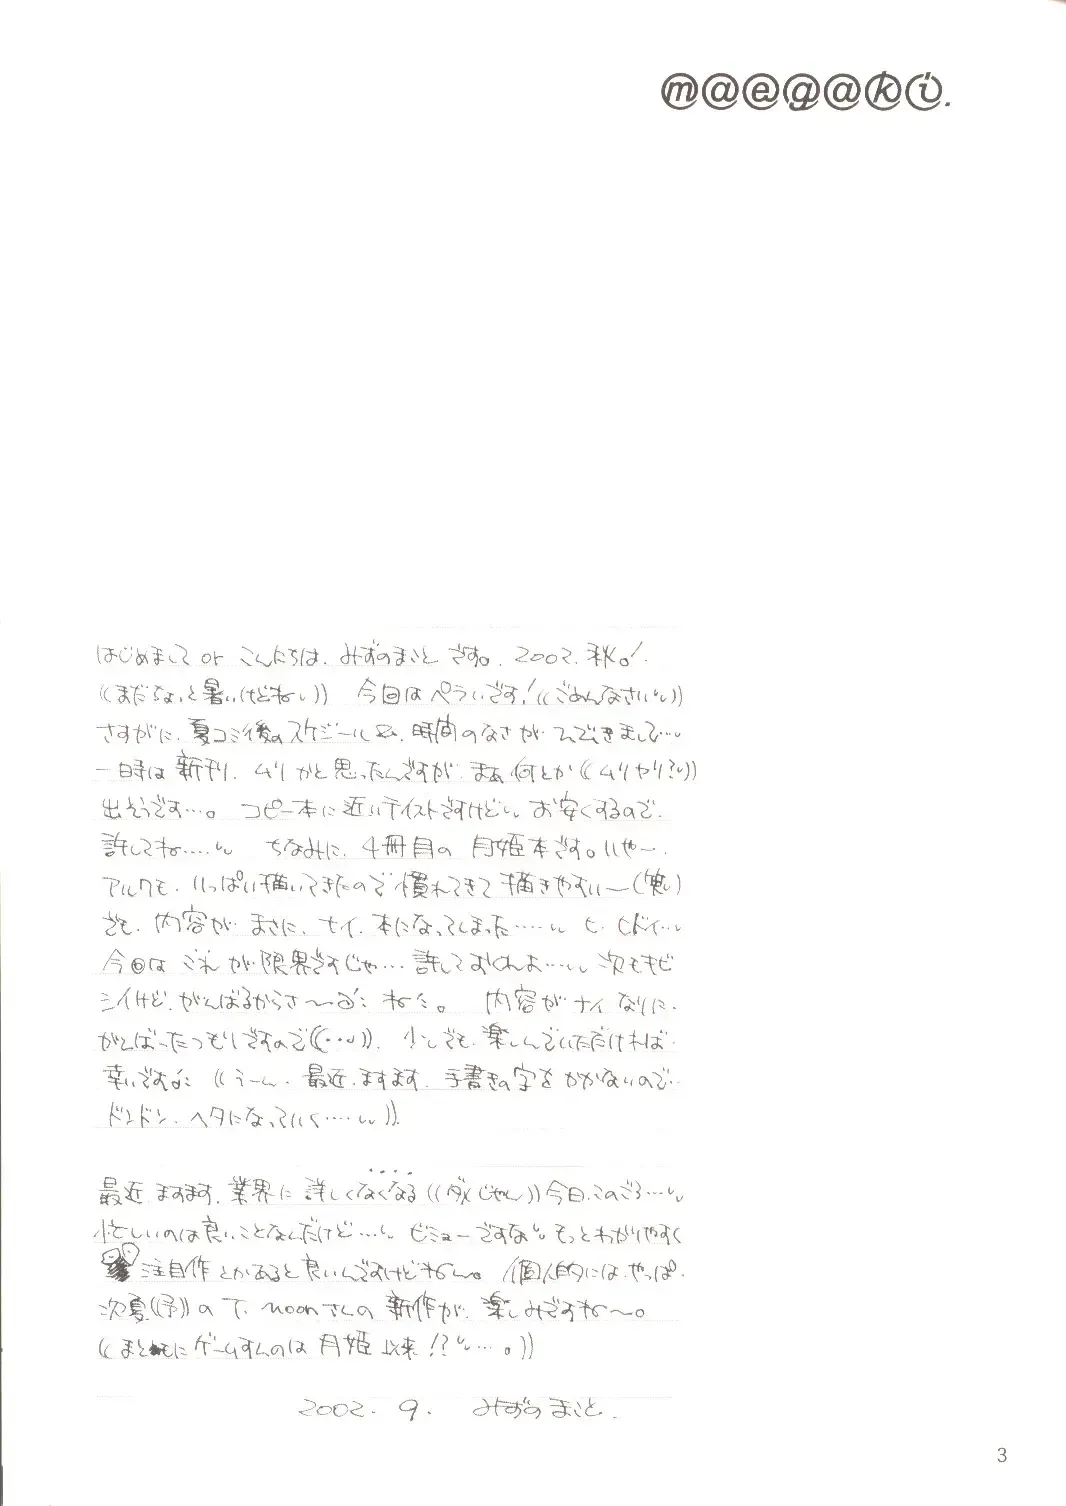 maegaki.
はじめまして or こんにちは、みずのまことです。2002.秋。!
((まだちょいと暑いけどねい)) 今回はペラいです!((ごめんなさいい))
さすがに、夏コミ後のスケジュール&、時間のなさが、でてきまして…
一時は新刊、ムリかと思ったんですが、まぁ何とか((ムリヤリ?い))
出そうです…。コピー本に近いテイストですけどい、お安くするので、
許してね……い ちなみに、4冊目の月姫本です。いやー、
アルクも、いっぱい描いてきたので慣れてきて描きやすいー(笑い)
でも、内容が、まさに、ナイ、本になってしまった……い ヒ、ヒドイ…い
今回はこれが限界ですじゃ…許しておくれよ…い 次もキビ
シイけど、がんばるからさ〜 ね。 内容がナイなりに、
がんばったつもりですので((…い))、少しでも、楽しんでいただければ、
幸いです ((うーん、最近、ますます、手書きの字をかかないので…
ドンドン、ヘタになっていく……い))
最近ますます、業界に詳しくなくなる((ダメじゃん))今日このごろ…い
忙しいのは良いことなんだけど…い ビミョーですないもっとわかりやすく
注目作とかあると良いんですけどねん。個人的には、やっぱ、
次夏((予))のT.moonさんの新作が、楽しみですね〜。
((まともにゲームすんのは月姫以来!?い…。))
2002.9. みずのまこと.
3